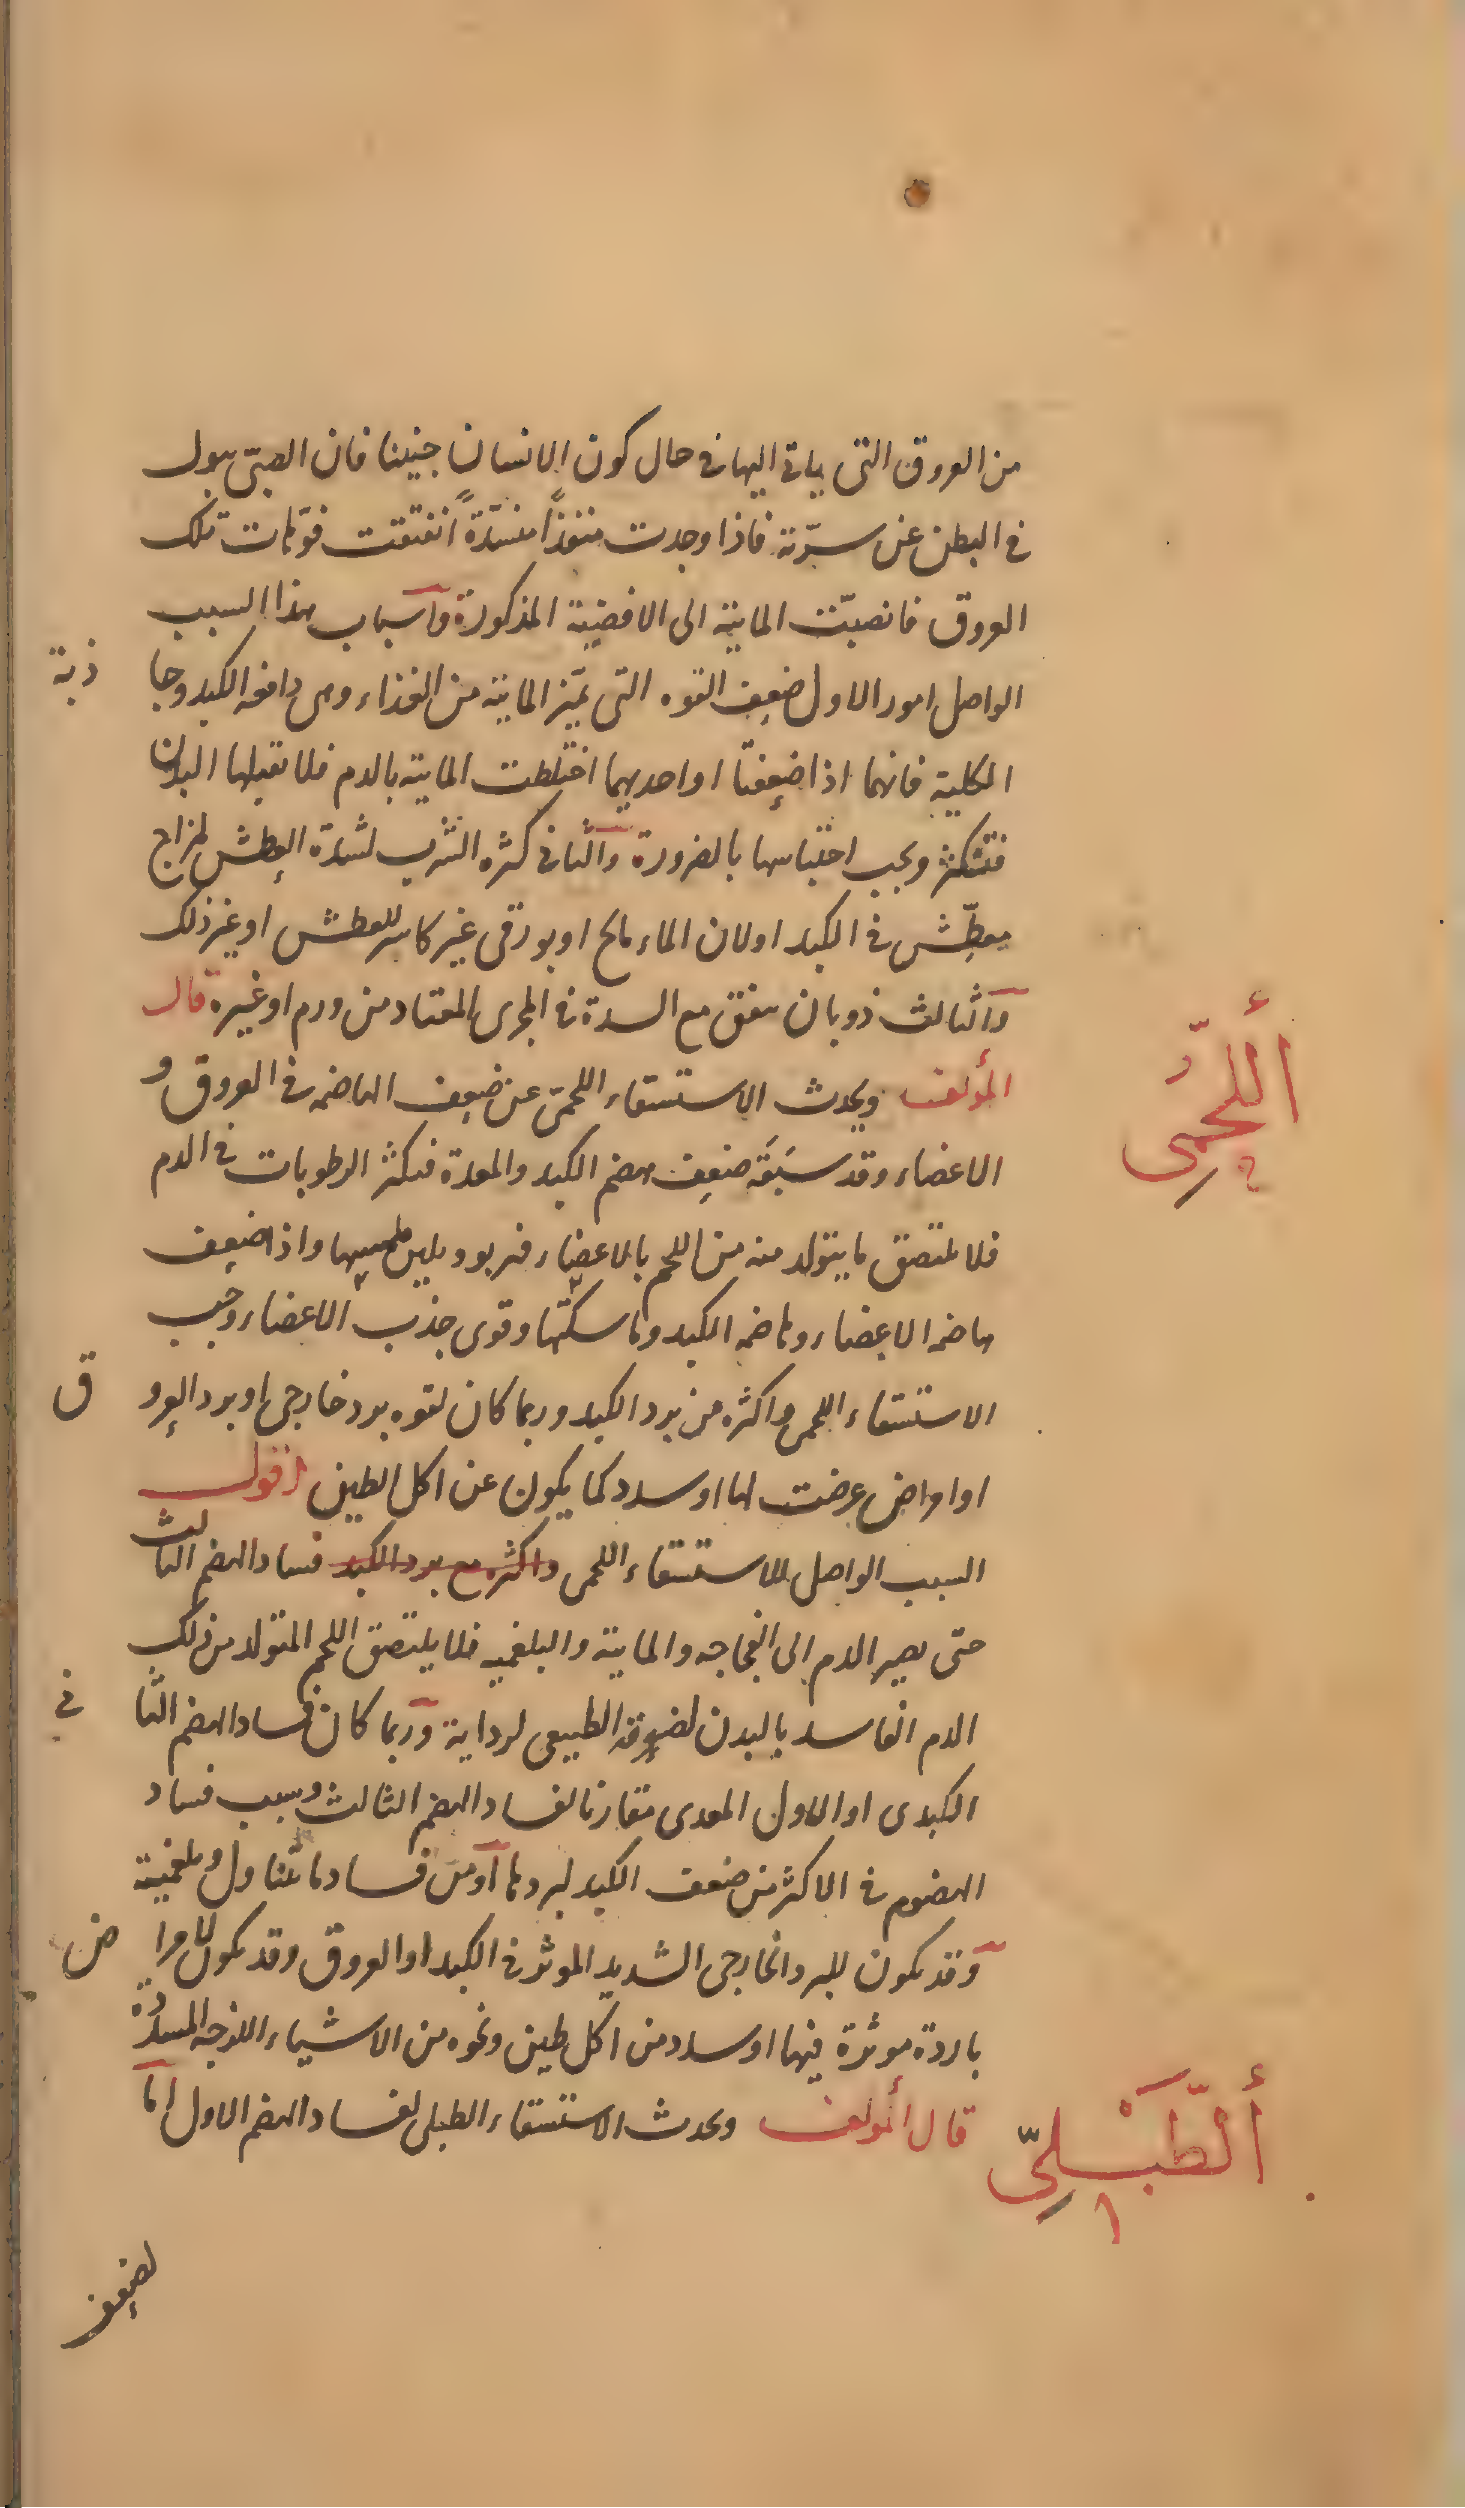 من العروق التى ياتى اليها فى حال كون الانسان جنينا فان الصبىّ يبول
فى البطن عن سرّته فاذا وجدت منفذاً منسدّةً انفتقت فوّهات تلك
العروق فانصبّت المايية الى الافضية المذكورة وآسباب هذا السبب
الواصل امور الاول ضعف القوه التى تميّز المايية من الغذاء وهى دافعه الكبد وجا ذبة
الكلية فانهما اذا ضعفتا او احديهما اختلطت المايية بالدم فلا تقبلها البدن
فتكثر ويجب احتباسها بالضرورة وآلثانى كثره الشرب لشدة العطش لمزاج
معطّش فى الكبد او لان الماء مالح او بورقى غير كاسر للعطش او غير ذلك
وآلثالث ذوبان يتفق مع السدة فى المجرى المعتاد من ورم او غيره قال
أللّحمِّى
المؤلف ويحدث الاستسقاء اللحمىّ عن ضعف الهاضمه فى العروق و
الاعضاء وقد سَبَقَه ضعف هضم الكبد والمعدة فتكثر الرطوبات فى الدم
فلا يلتصق ما يتولد منه من اللحم بالاعضاء فيربو ويلين ملمسها واذا ضعف
هاضمه الاعضاء وهاضمه الكبد وماسكتها وقوى جذب الاعضاء وجب
الاستسقاء اللحمى واكثره من برد الكبد وربما كان لقوه برد خارجى او برد العرو ق
او امراض عرضت لها او سدد كما يكون عن اكل الطين اقول
السبب الواصل للاستسقاء اللحمى واكثره مع برد الكبد فساد الهضم الثالث
حتى يصير الدم الى الفجاجه والمايية والبلغميه فلا يلتصق اللحم المتولد من ذلك
الدم الفاسد بالبدن الطبيعى لرداية وربما كان فساد الهضم الثا نى
الكبدى او الاول المعدى مقارنا لفساد الهضم الثالث وسبب فساد
الهضوم فى الاكثر من ضعف الكبد لبردها آو من فساد ما تناول وبلغميّته
وقد يكون للبرد الخارجى الشديد الموثر فى الكبد او العروق وقد يكون لامرا ض
باردة موثرة فيها او سدد من اكل طين ونحوه من الاشياء اللزجه المسدّدة
ألطّبَْلىّ
قال المؤلف ويحدث الاستسقاء الطبلى لفساد الهضم الاول امّا
لضعف